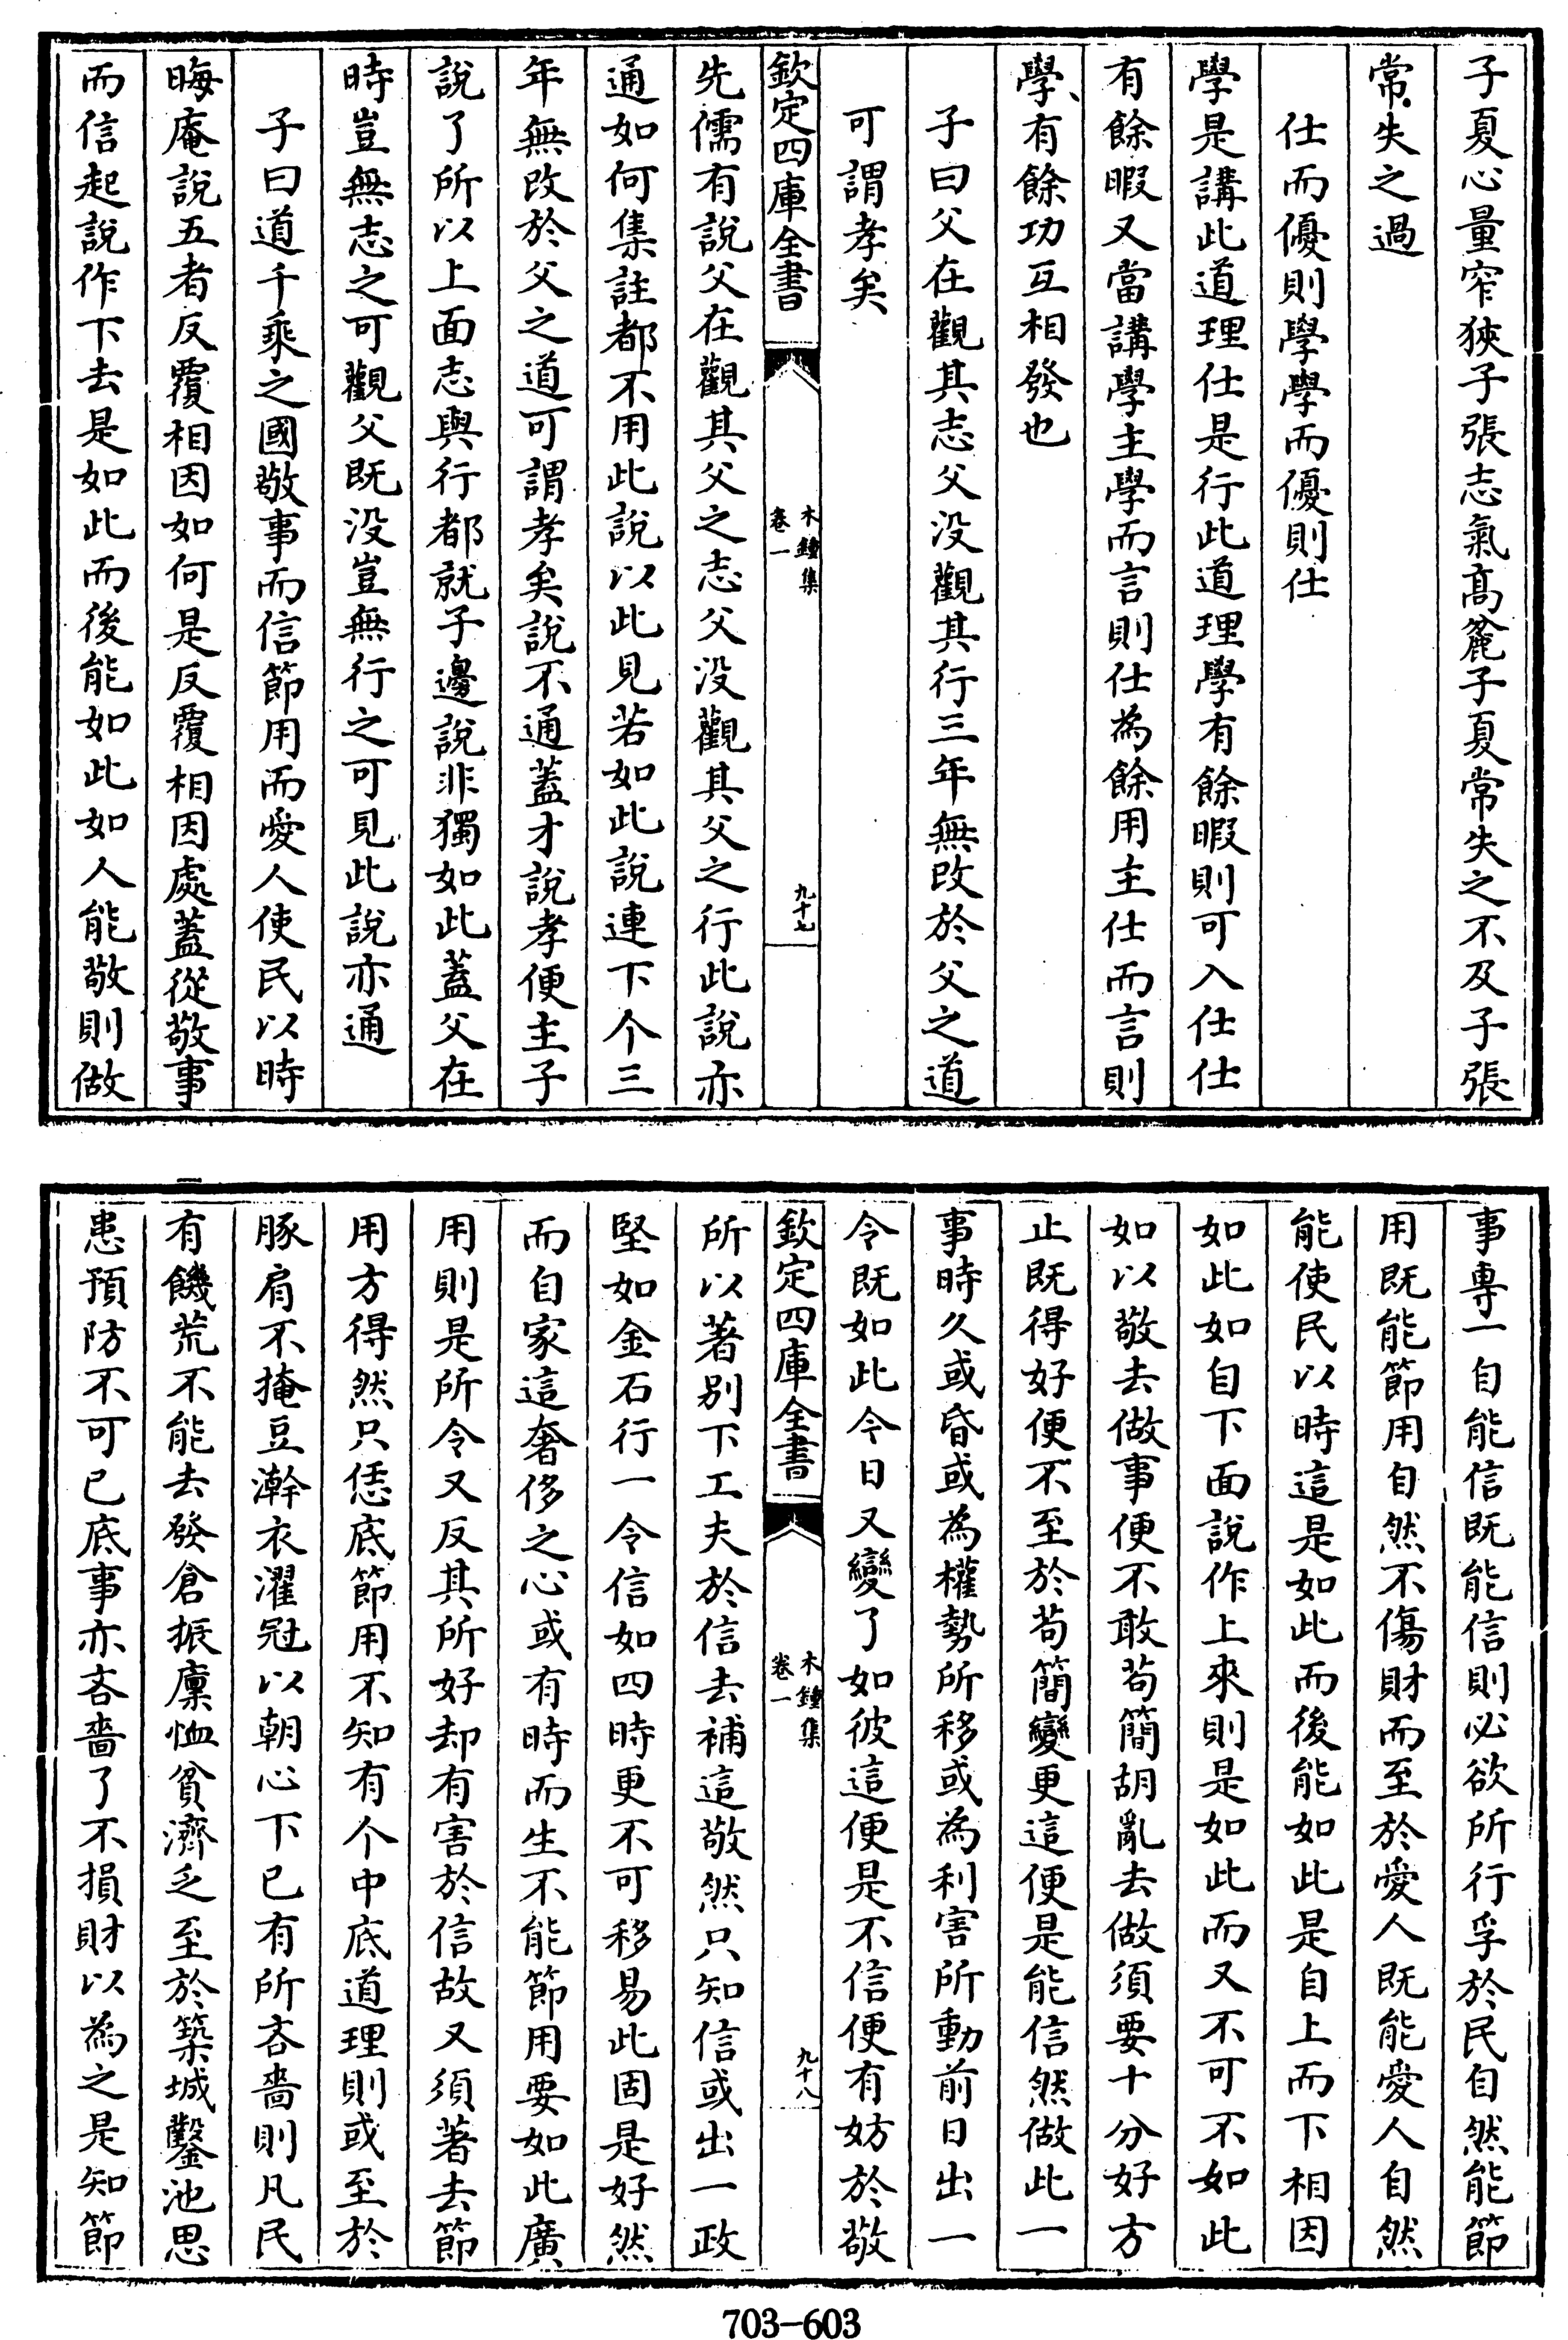 子夏心量窄狹子張志氣髙麄子夏常失之不及子張
常失之過
仕而優則學學而優則仕
學是講此道理仕是行此道理學有餘暇則可入仕仕
有餘暇又當講學主學而言則仕為餘用主仕而言則
學有餘功互相發也
子曰父在觀其志父没觀其行三年無改於父之道
可謂孝矣
欽定四庫全書
木鍾集
卷一
九十七
先儒有說父在觀其父之志父没觀其父之行此說亦
通如何集註都不用此說以此見若如此說連下个三
年無改於父之道可謂孝矣說不通蓋才說孝便主子
說了所以上面志與行都就子邊說非獨如此蓋父在
時豈無志之可觀父既没豈無行之可見此說亦通
子曰道千乘之國敬事而信節用而愛人使民以時
晦庵說五者反覆相因如何是反覆相因處蓋從敬事
而信起說作下去是如此而後能如此如人能敬則做
事專一自能信既能信則必欲所行孚於民自然能節
用既能節用自然不傷財而至於愛人既能愛人自然
能使民以時這是如此而後能如此是自上而下相因
如此如自下面說作上來則是如此而又不可不如此
如以敬去做事便不敢茍簡胡亂去做須要十分好方
止既得好便不至於茍簡變更這便是能信然做此一
事時久或昏或為權勢所移或為利害所動前日出一
令既如此今日又變了如彼這便是不信便有妨於敬
欽定四庫全書
木鍾集
卷一
九十八
所以著别下工夫於信去補這敬然只知信或出一政
堅如金石行一令信如四時更不可移易此固是好然
而自家這奢侈之心或有時而生不能節用要如此廣
用則是所令又反其所好却有害於信故又須著去節
用方得然只恁底節用不知有个中底道理則或至於
豚肩不掩豆澣衣濯冠以朝心下已有所吝嗇則凡民
有饑荒不能去發倉振廩恤貧濟乏至於築城鑿池思
患預防不可已底事亦吝嗇了不損財以為之是知節
703-603